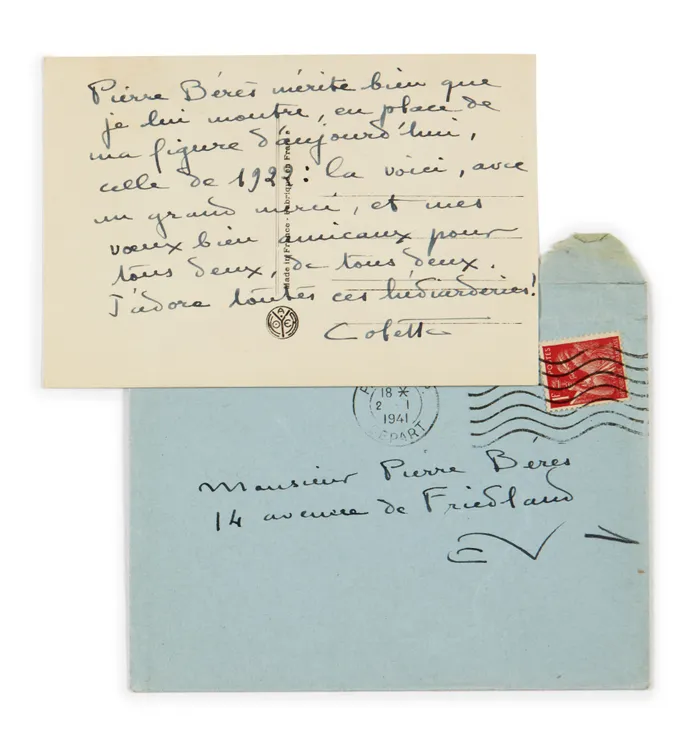 Pierre Bérès mérite bien que
je lui montre, en place de
ma figure d'aujourd'hui,
celle de 1922 : la voici, avec
un grand merci, et mes
vœux bien amicaux pour
tous deux, de tous deux.
J'adore toutes ces hédiarderies!
Colette
Made in France - Fabriqué en France
18
2 I
1941
DÉPART
POSTES
Monsieur Pierre Bérès
14 avenue de Friedland
EV